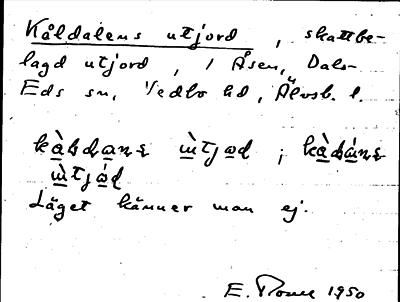 Kåldalens utjord, skattbe-
lagd utjord, i Åsen, Dals-
Eds sn, Vedbo hd, Älvsb. l.
kàldanɛ ùtjod ; kàldánɛ
ùtjód
Läget känner man ej.
E. 1950